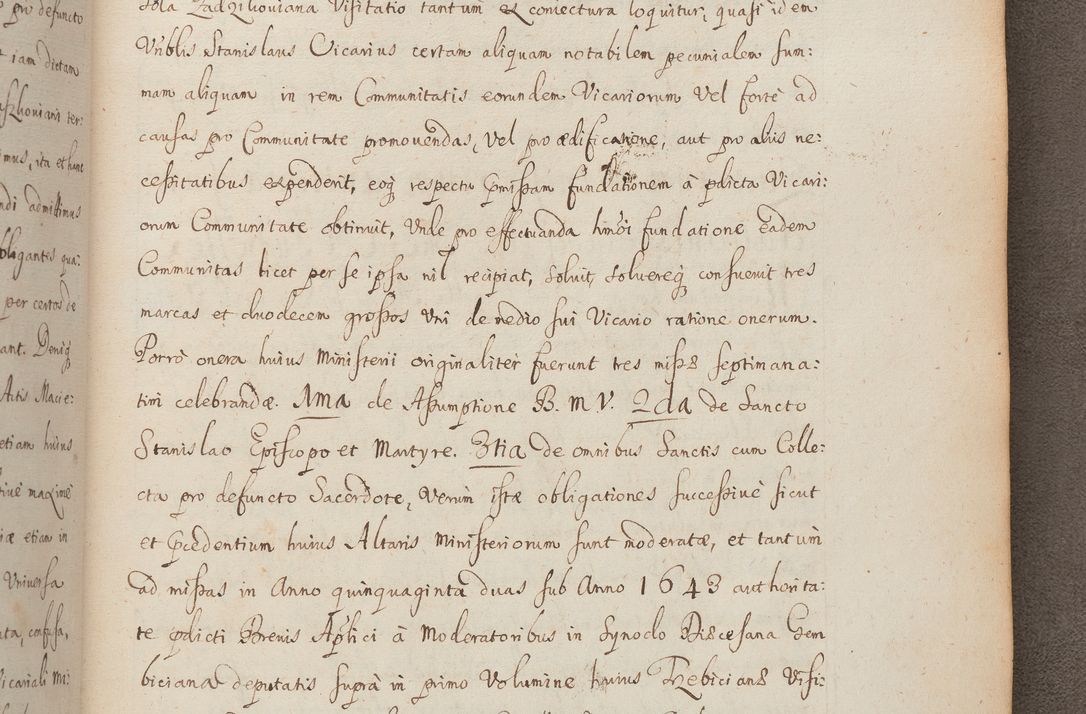 pro defuncto
iam dictam
ter:
mus, ita et hunc
ndi admittimus
bligantes qua:
per certos de
ant. Deniq
Actis Macie:
etiam huius
tiue maximè
iæ etiam in
Vniuersa
ata, confusa,
icariali Mi:
sola Zadzikouiana Visitatio tantum ex coniectura loquitur, quasi idem
Vnblis Stanislaus Vicarius certam aliquam notabilem pecunialem sum:
mam aliquam in rem Communitatis eorundem Vicariorum Vel fortè ad
causas pro Communitate promouendas, Vel pro ædificatione, aut pro aliis ne:
cessitatibus expenderit, eoq respectu pmissam fundationem à pdicta Vicari:
orum Communitate obtinuit, Vnde pro effectuanda hmoi fundatione eadem
Communitas licet per se ipsa nil recipiat, soluit, soluereq consueuit tres
marcas et duodecem grossos Vni de medio sui Vicario ratione onerum.
Porrò onera huius Ministerii originaliter fuerunt tres missæ septimana:
tim celebrandæ. 1ma de Assumptione B. M. V. 2da de Sancto
Stanislao Episcopo et Martyre. 3tia de omnibus Sanctis cum Colle:
cta pro defuncto Sacerdote, Verùm istæ obligationes successiuè sicut
et pcedentium huius Altaris Ministeriorum sunt moderatæ, et tantum
ad missas in Anno quinquaginta duas sub Anno 1643 authorita:
te pdicti Breuis Aplici à Moderatoribus in Synodo Diæcesana Gem
biciana deputatis suprà in primo Volumine huius Trebicianæ Visi: